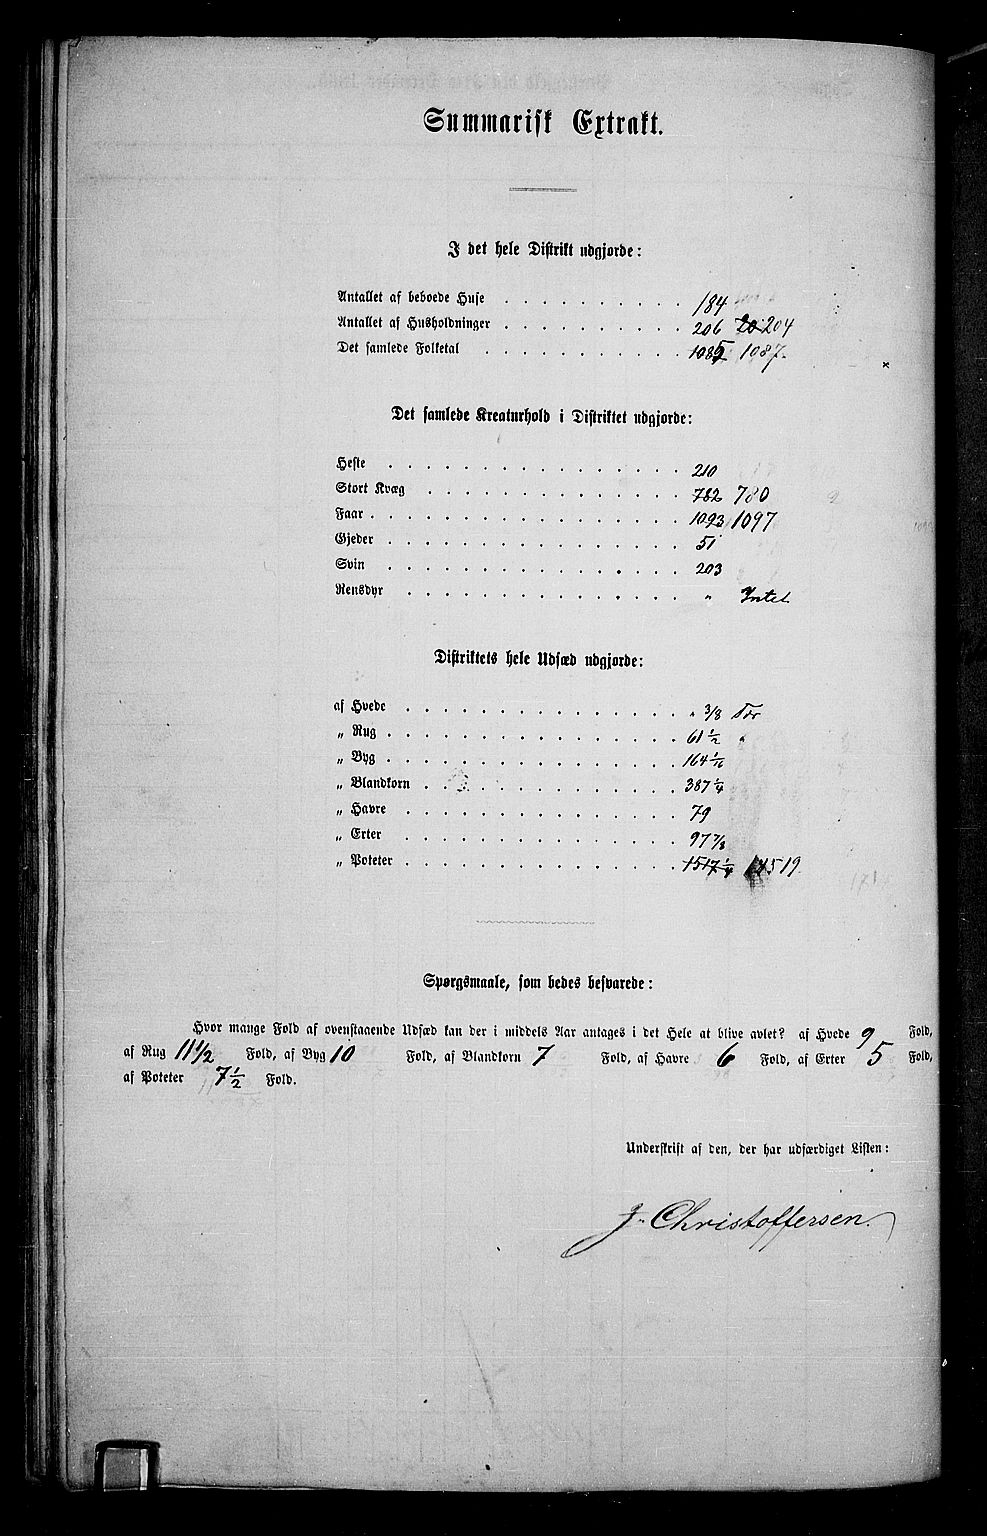 Summarisk Extrakt.
I det hele Distrikt udgjorde:
Antallet af beboede Huse . . . . . . . . . . 184
Antallet af Husholdninger . . . . . . . . . . 206 20 204
Det samlede Folketal . . . . . . . . . . . 1085 1087.
Det samlede Kreaturhold i Distriktet udgjorde:
Heste . . . . . . . . . . . . . . . . 210
Stort Kvæg . . . . . . . . . . . . . . 782 780
Faar . . . . . . . . . . . . . . . . . 1093 1097
Gjeder . . . . . . . . . . . . . . . . 51
Svin . . . . . . . . . . . . . . . . 203
Rensdyr . . . . . . . . . . . . . . . " Intet
Distriktets hele Udsæd udgjorde:
af Hvede . . . . . . . . . . . . . . . " 3/8 Tdr
„ Rug . . . . . . . . . . . . . . . . 61 1/2 "
„ Byg . . . . . . . . . . . . . . . . 164 1/16
„ Blandkorn . . . . . . . . . . . . . . 387 1/4
„ Havre . . . . . . . . . . . . . . . 79
„ Erter . . . . . . . . . . . . . . . 97 7/8
„ Poteter . . . . . . . . . . . . . . 1517 1/4 1519.
Spørgsmaale, som bedes besvarede:
Hvor mange Fold af ovenstaaende Udsæd kan der i middels Aar antages i det Hele at blive avlet? af Hvede 9 Fold,
af Rug 11 1/2 Fold, af Byg 10 Fold, af Blandkorn 7 Fold, af Havre 6 Fold, af Erter 5 Fold,
af Poteter 7 1/2 Fold.
Underskrift af den, der har udfærdiget Listen:
J. Christoffersen.